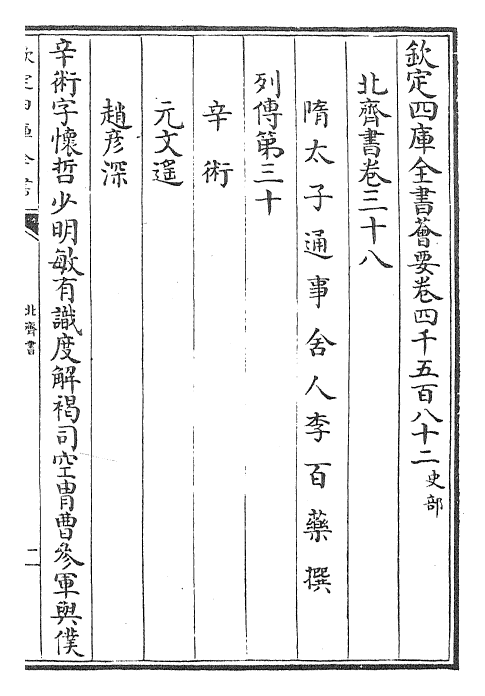 欽定四庫全書薈要卷四千五百八十二 史部
北齊書卷三十八
隋太子通事舍人李百藥撰
列傳第三十
辛術
元文遙
趙彥深
辛術字懷哲少明敏有識度解褐司空冑曹參軍與僕
欽定四庫全書
北齊書